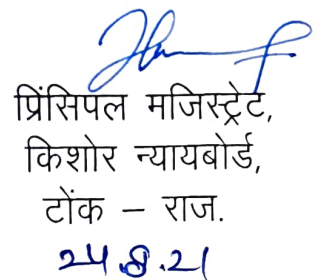 प्रिंसिपल मजिस्ट्रेट,
किशोर न्यायबोर्ड,
टोंक – राज.